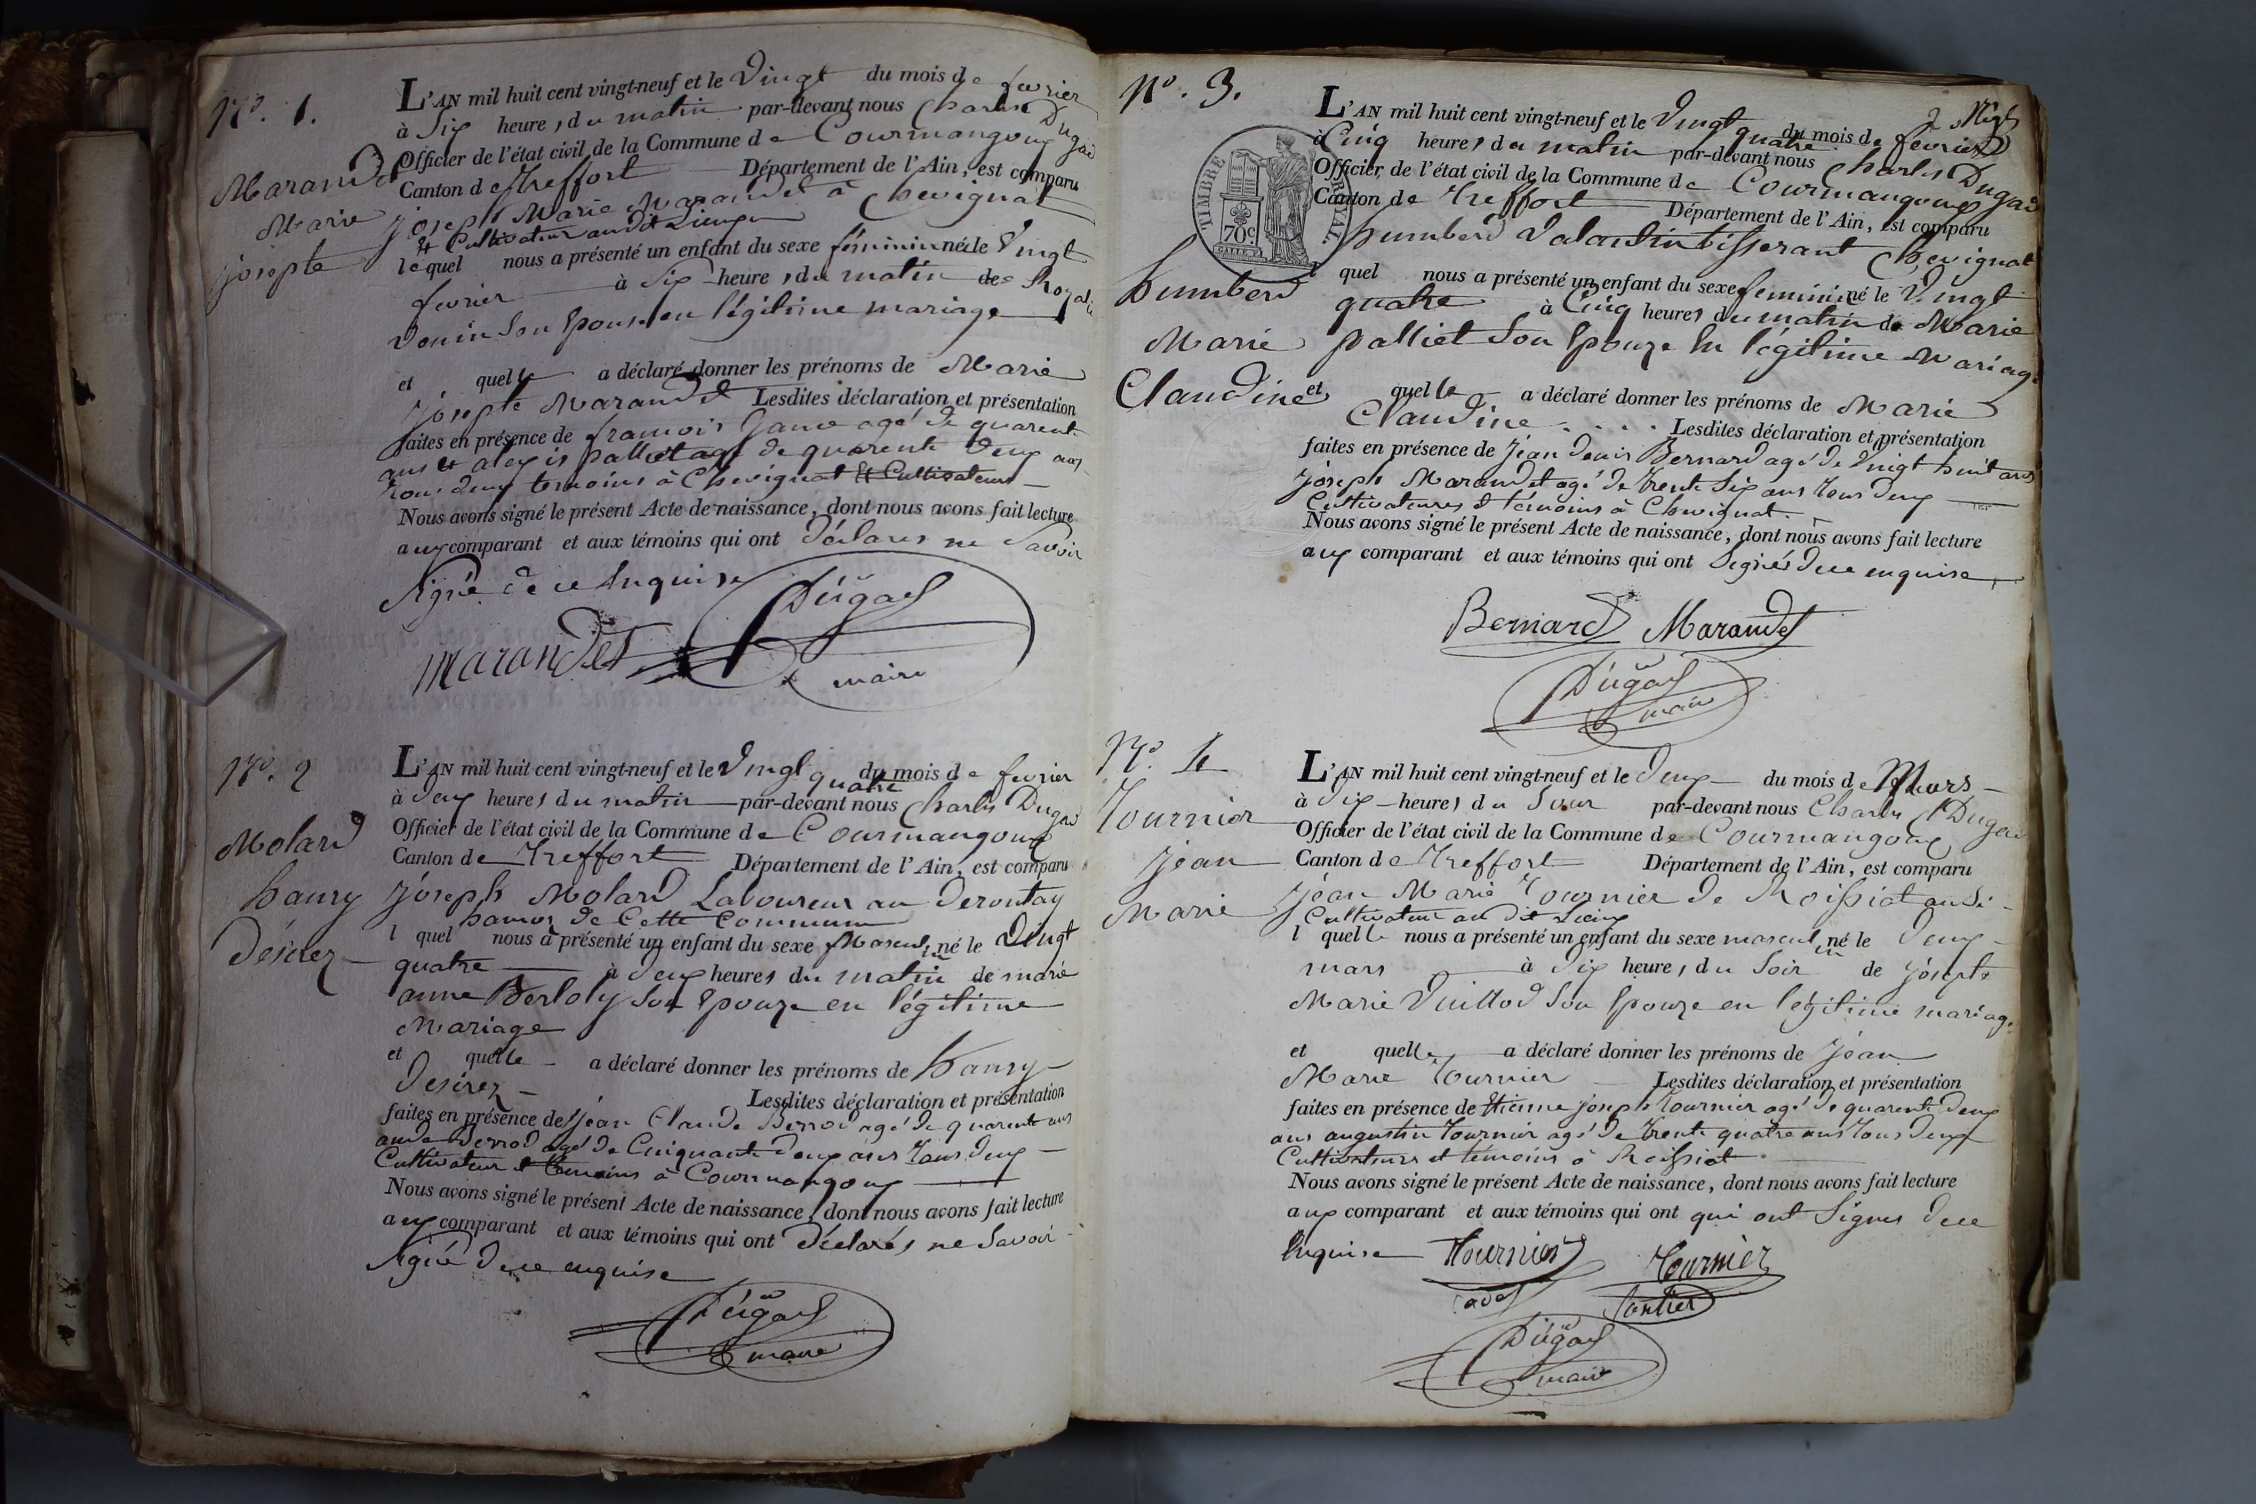 N.o 1.
Marandet
Marie
josepte
L'AN mil huit cent vingt-neuf et le Vingt du mois de fevrier
à Six heures du matin par-devant nous Charles Dugad
Officier de l'état civil de la Commune de Courmangoux
Canton de Treffort Département de l'Ain, est comparu
joseph Marie Marandet à Chevignat
et Cultivateur audit Lieux
lequel nous a présenté un enfant du sexe féminin née le Vingt
fevrier à Six heures du matin de
Son Epouse en légitime mariage
et quelle a déclaré donner les prénoms de Marie
josepte Marandet Lesdites déclaration et présentation
faites en présence de françois agé de quarente
ans et alexis palliet agé de quarente deux ans
tous deux temoins à Chevignat et Cultivateurs
Nous avons signé le présent Acte de naissance, dont nous avons fait lecture
aux comparant et aux témoins qui ont déclarés ne Savoir
Signé de ce Enquise
Marandet Dügad
maire
N.o 2
Molard
hanry
Désirez
L'AN mil huit cent vingt-neuf et le Vingt quatre du mois de fevrier
à deux heures du matin par-devant nous Charles Dugad
Officier de l'état civil de la Commune de Courmangoux
Canton de Treffort Département de l'Ain, est comparu
joseph Molard Laboureur au Derontay
hamos de Cette Commune
l quel nous a présenté un enfant du sexe Masculin né le Vingt
quatre à deux heures du matin de marie
anne Berloty Son Epouze en légitime
Mariage
et quelle a déclaré donner les prénoms de hanry
Desirez Lesdites déclaration et présentation
faites en présence de jéan Claude agé de quarente ans
agé de Cinquante deux ans tous deux
Cultivateur et témoins à Courmangoux
Nous avons signé le présent Acte de naissance, dont nous avons fait lecture
aux comparant et aux témoins qui ont déclarés ne Savoir
Signé de ce enquise
Dügad
maire
N.o 3.
2
TIMBRE ROYAL
70c.
humberd
Marie
Claudine
L'AN mil huit cent vingt-neuf et le Vingt quatre du mois de fevrier
à Cinq heures du matin par-devant nous Charles Dugad
Officier de l'état civil de la Commune de Courmangoux
Canton de Treffort Département de l'Ain, est comparu
humberd Valantin tisserant Chevignat
l quel nous a présenté un enfant du sexe feminin né le Vingt
quatre à Cinq heures du matin de Marie
palliet Son Epouze En légitime Mariage
et quelle a déclaré donner les prénoms de Marie
Claudine Lesdites déclaration et présentation
faites en présence de jéan denis Bernard agé de Vingt huit ans
joseph Marandet agé de trente Six ans tous deux
Cultivateures et témoins à Chevignat.
Nous avons signé le présent Acte de naissance, dont nous avons fait lecture
aux comparant et aux témoins qui ont Signés de ce enquise
Bernard Marandet
Dügad
maire
N.o 4
Tournier
jean
Marie
L'AN mil huit cent vingt-neuf et le deux du mois de Mars
à dix heures du Soir par-devant nous Charles Dugad
Officier de l'état civil de la Commune de Courmangoux
Canton de Treffort Département de l'Ain, est comparu
jéan Marie Tournier de Roissiat
Cultivateur audit Lieux
l quelle nous a présenté un enfant du sexe masculin né le deux
mars à dix heures du Soir de josepte
Marie Vuillod Son Epouze en légitime mariage
et quelle a déclaré donner les prénoms de jéan
Marie Tournier Lesdites déclaration et présentation
faites en présence de Etienne joseph Tournier agé de quarente deux
ans augustin Tournier agé de trente quatre ans tous deux
Cultivateurs et témoins à Roissiat
Nous avons signé le présent Acte de naissance, dont nous avons fait lecture
aux comparant et aux témoins qui ont qui ont Signes de ce
Enquise Tournier Tournier
Dügad
maire